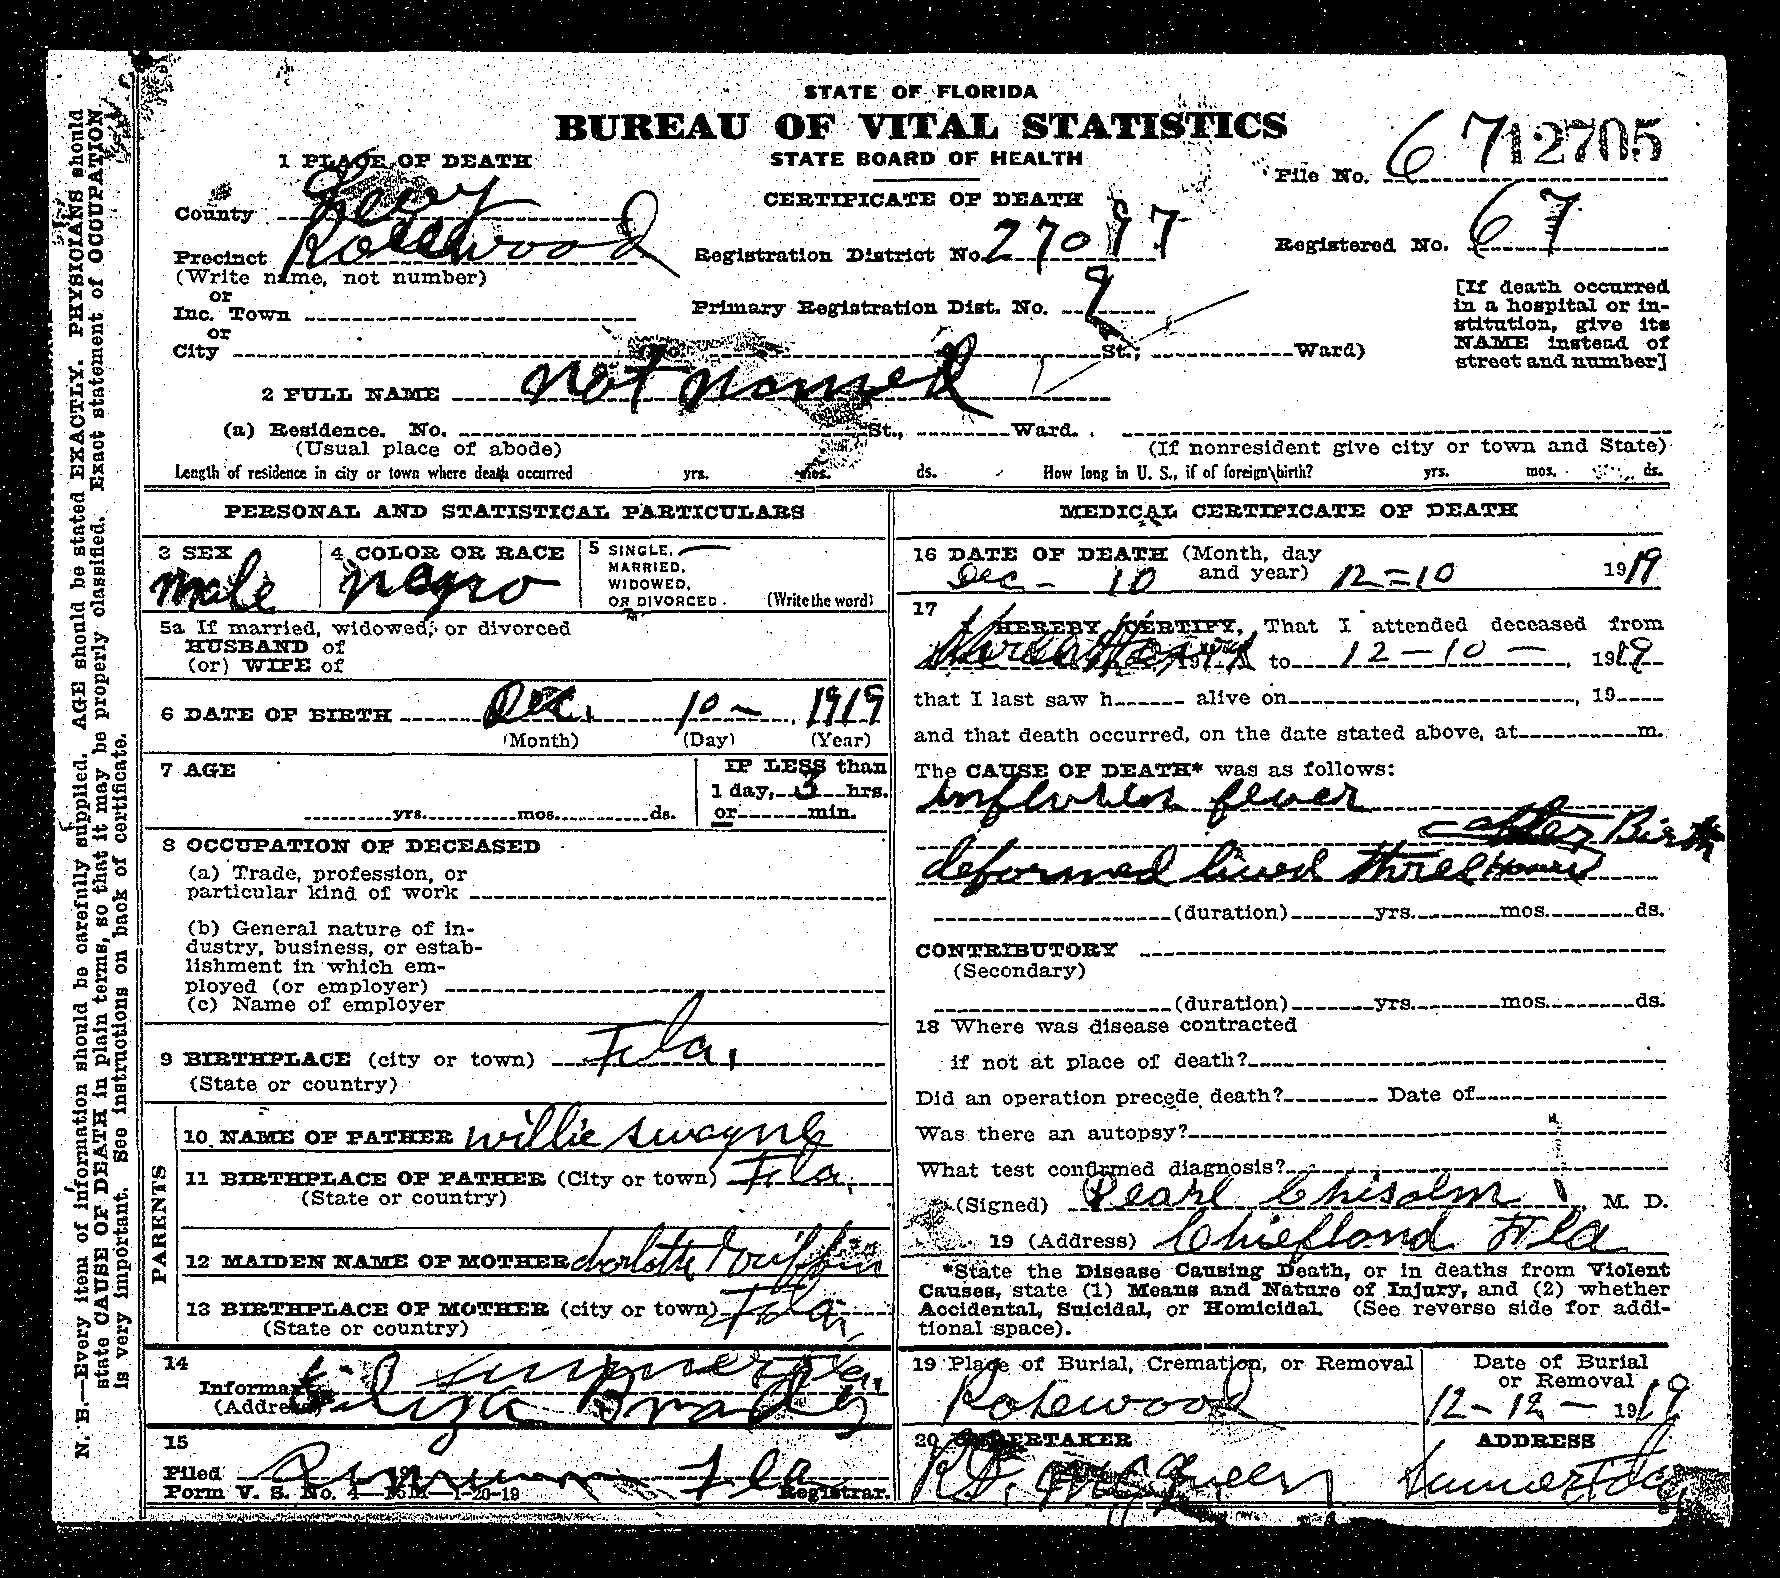 STATE OF FLORIDA
BUREAU OF VITAL STATISTICS
STATE BOARD OF HEALTH
CERTIFICATE OF DEATH
File No. 6712705
1 PLACE OF DEATH
County Levy
Precinct Rosewood
(Write name, not number)
or
Inc. Town
or
City St., Ward)
Registration District No. 270
Primary Registration Dist. No. 9
Registered No. 67
[If death occurred
in a hospital or in-
stitution, give its
NAME instead of
street and number]
2 FULL NAME not named
(a) Residence. No. St., Ward.
(Usual place of abode) (If nonresident give city or town and State)
Length of residence in city or town where death occurred yrs. mos. ds. How long in U. S., if of foreign birth? yrs. mos. ds.
PERSONAL AND STATISTICAL PARTICULARS
3 SEX
male
4 COLOR OR RACE
negro
5 SINGLE,
MARRIED,
WIDOWED,
OR DIVORCED. (Write the word)
5a If married, widowed, or divorced
HUSBAND of
(or) WIFE of
6 DATE OF BIRTH Dec. 10 - 1919
(Month) (Day) (Year)
7 AGE
yrs. mos. ds.
IF LESS than
1 day, 3 hrs.
or min.
8 OCCUPATION OF DECEASED
(a) Trade, profession, or
particular kind of work
(b) General nature of in-
dustry, business, or estab-
lishment in which em-
ployed (or employer)
(c) Name of employer
9 BIRTHPLACE (city or town) Fla.
(State or country)
PARENTS
10 NAME OF FATHER willie swayne
11 BIRTHPLACE OF FATHER (City or town) Fla.
(State or country)
12 MAIDEN NAME OF MOTHER Griffin
13 BIRTHPLACE OF MOTHER (city or town) Fla.
(State or country)
14
Informant
(Address) Liza Bradly
15
Filed Fla
Form V. S. No. 4 1-20-19 Registrar.
MEDICAL CERTIFICATE OF DEATH
16 DATE OF DEATH (Month, day
and year) Dec - 10 12=10 1919
17
I HEREBY CERTIFY, That I attended deceased from
to 12-10- , 1919
that I last saw h alive on , 19
and that death occurred, on the date stated above, at m.
The CAUSE OF DEATH* was as follows:
fever
after Birth
deformed lived three hours
(duration) yrs. mos. ds.
CONTRIBUTORY
(Secondary)
(duration) yrs. mos. ds.
18 Where was disease contracted
if not at place of death?
Did an operation precede death? Date of
Was there an autopsy?
What test confirmed diagnosis?
(Signed) Pearl Chisolm , M. D.
19 (Address) Chiefland Fla
*State the Disease Causing Death, or in deaths from Violent
Causes, state (1) Means and Nature of Injury, and (2) whether
Accidental, Suicidal, or Homicidal. (See reverse side for addi-
tional space).
19 Place of Burial, Cremation, or Removal
Rosewood
Date of Burial
or Removal
12-12- 1919
20 UNDERTAKER
ADDRESS
N. B.—Every item of information should be carefully supplied. AGE should be stated EXACTLY. PHYSICIANS should
state CAUSE OF DEATH in plain terms, so that it may be properly classified. Exact statement of OCCUPATION
is very important. See instructions on back of certificate.